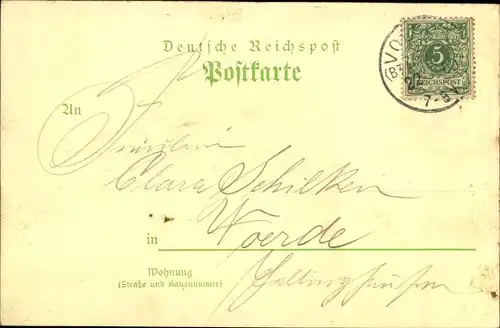 Deutsche Reichspost
Postkarte
5
REICHSPOST
VO
(BZ
22
7-8N
An
Fräulein
Clara Schilken
in Voerde
Wohnung
(Straße und Hausnummer)